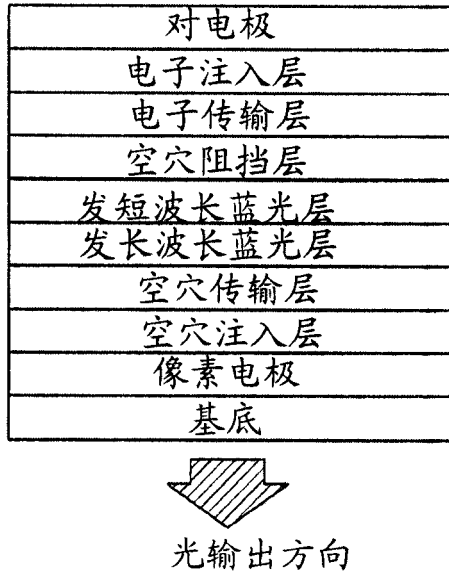 对电极
电子注入层
电子传输层
空穴阻挡层
发短波长蓝光层
发长波长蓝光层
空穴传输层
空穴注入层
像素电极
基底
光输出方向